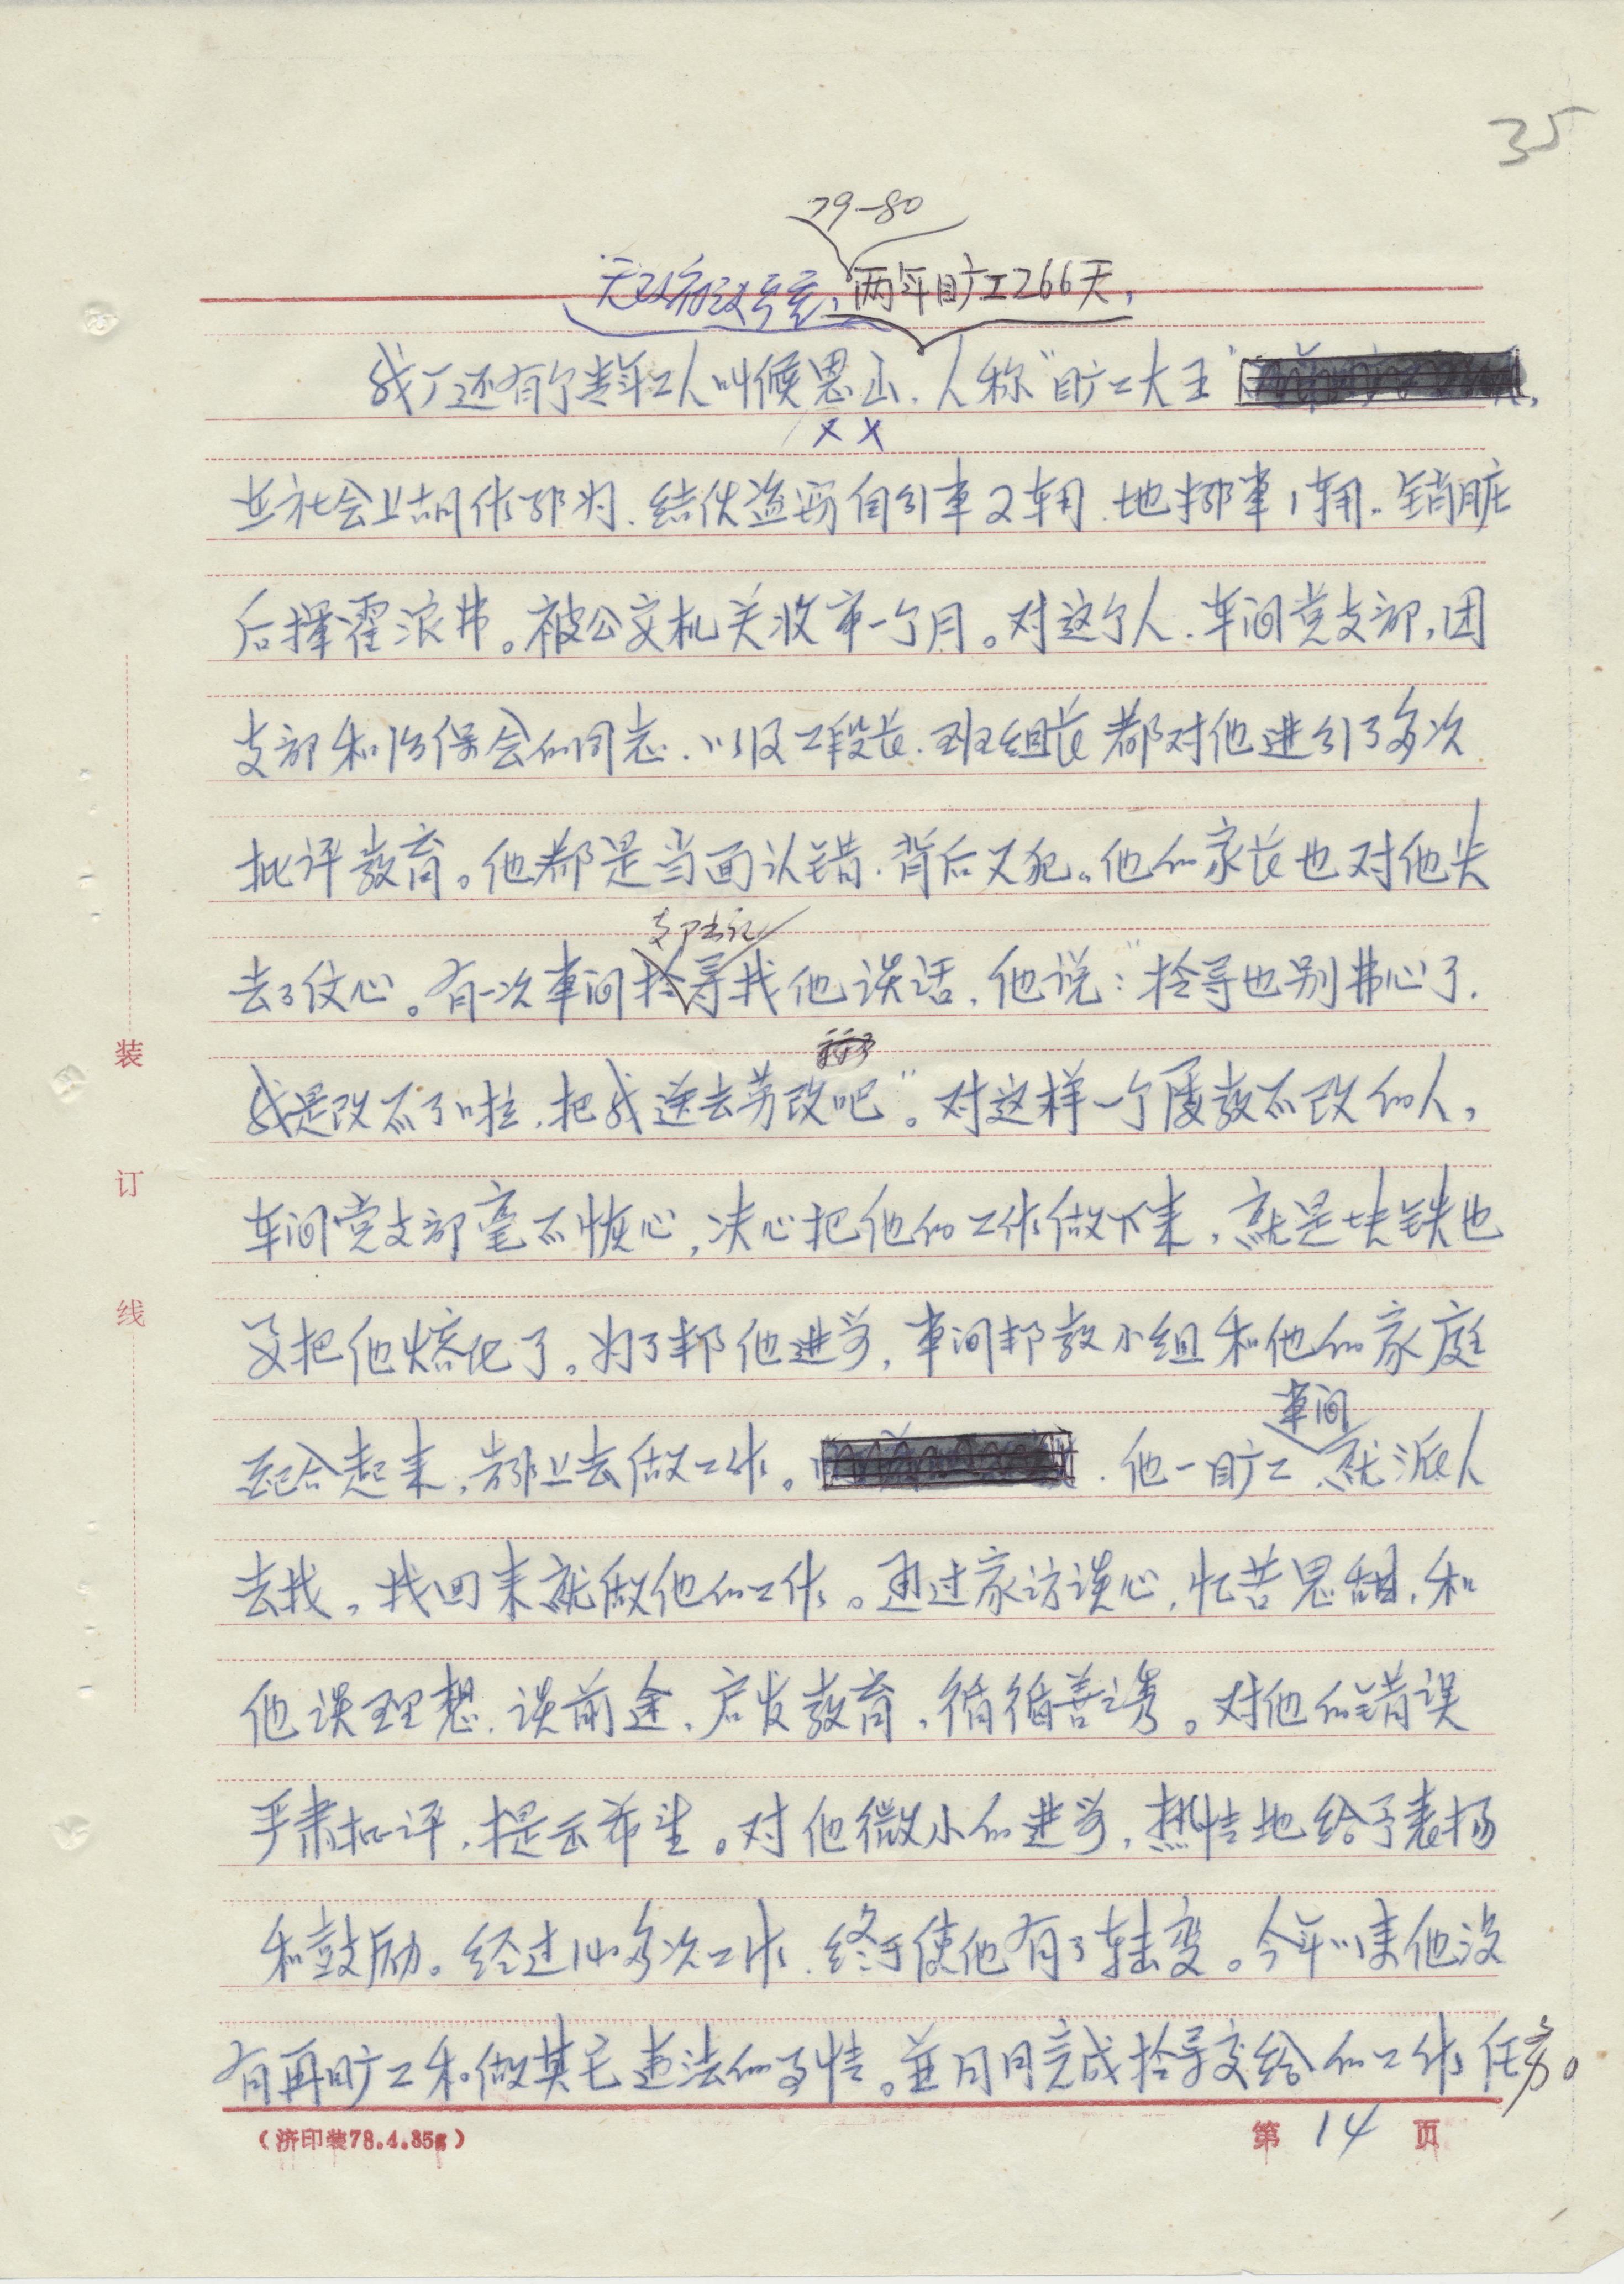 35
79-80
无政府主义严重，两年旷工266天，
我厂还有个青年工人叫候恩山、人称“旷工大王”
××
在社会上胡作非为、结伙盗窃自行車2辆、地排車1辆。销脏
后挥霍浪费。被公安机关收审一个月。对这个人、车间党支部，团
支部和治保会的同志、以及工段长、班组长都对他进行了多次
批评教育。他都是当面认错、背后又犯。他的家长也对他失
支部书记
去了信心。有一次車间拎导找他谈话，他说：“拎导也别费心了、
我是改不了啦，把我送去劳改吧”。对这样一个屡教不改的人，
车间党支部毫不恢心，决心把他的工作做下来，就是块铁也
要把他熔化了。为了帮他进步，車间帮教小组和他的家庭
車间
配合起来，都上去做工作。他一旷工、就派人
去找，找回来就做他的工作。通过家访谈心，忆苦思甜，和
他谈理想、谈前途、启发教育，循循善诱。对他的错误
严肃批评，提出希望。对他微小的进步，热情地给予表扬
和鼓励。经过140多次工作、终于使他有了转变。今年以来他没
有再旷工和做其它违法的事情。並月月完成拎导交给的工作任务。
装
订
线
（济印装78.4.85g）
第 14 页